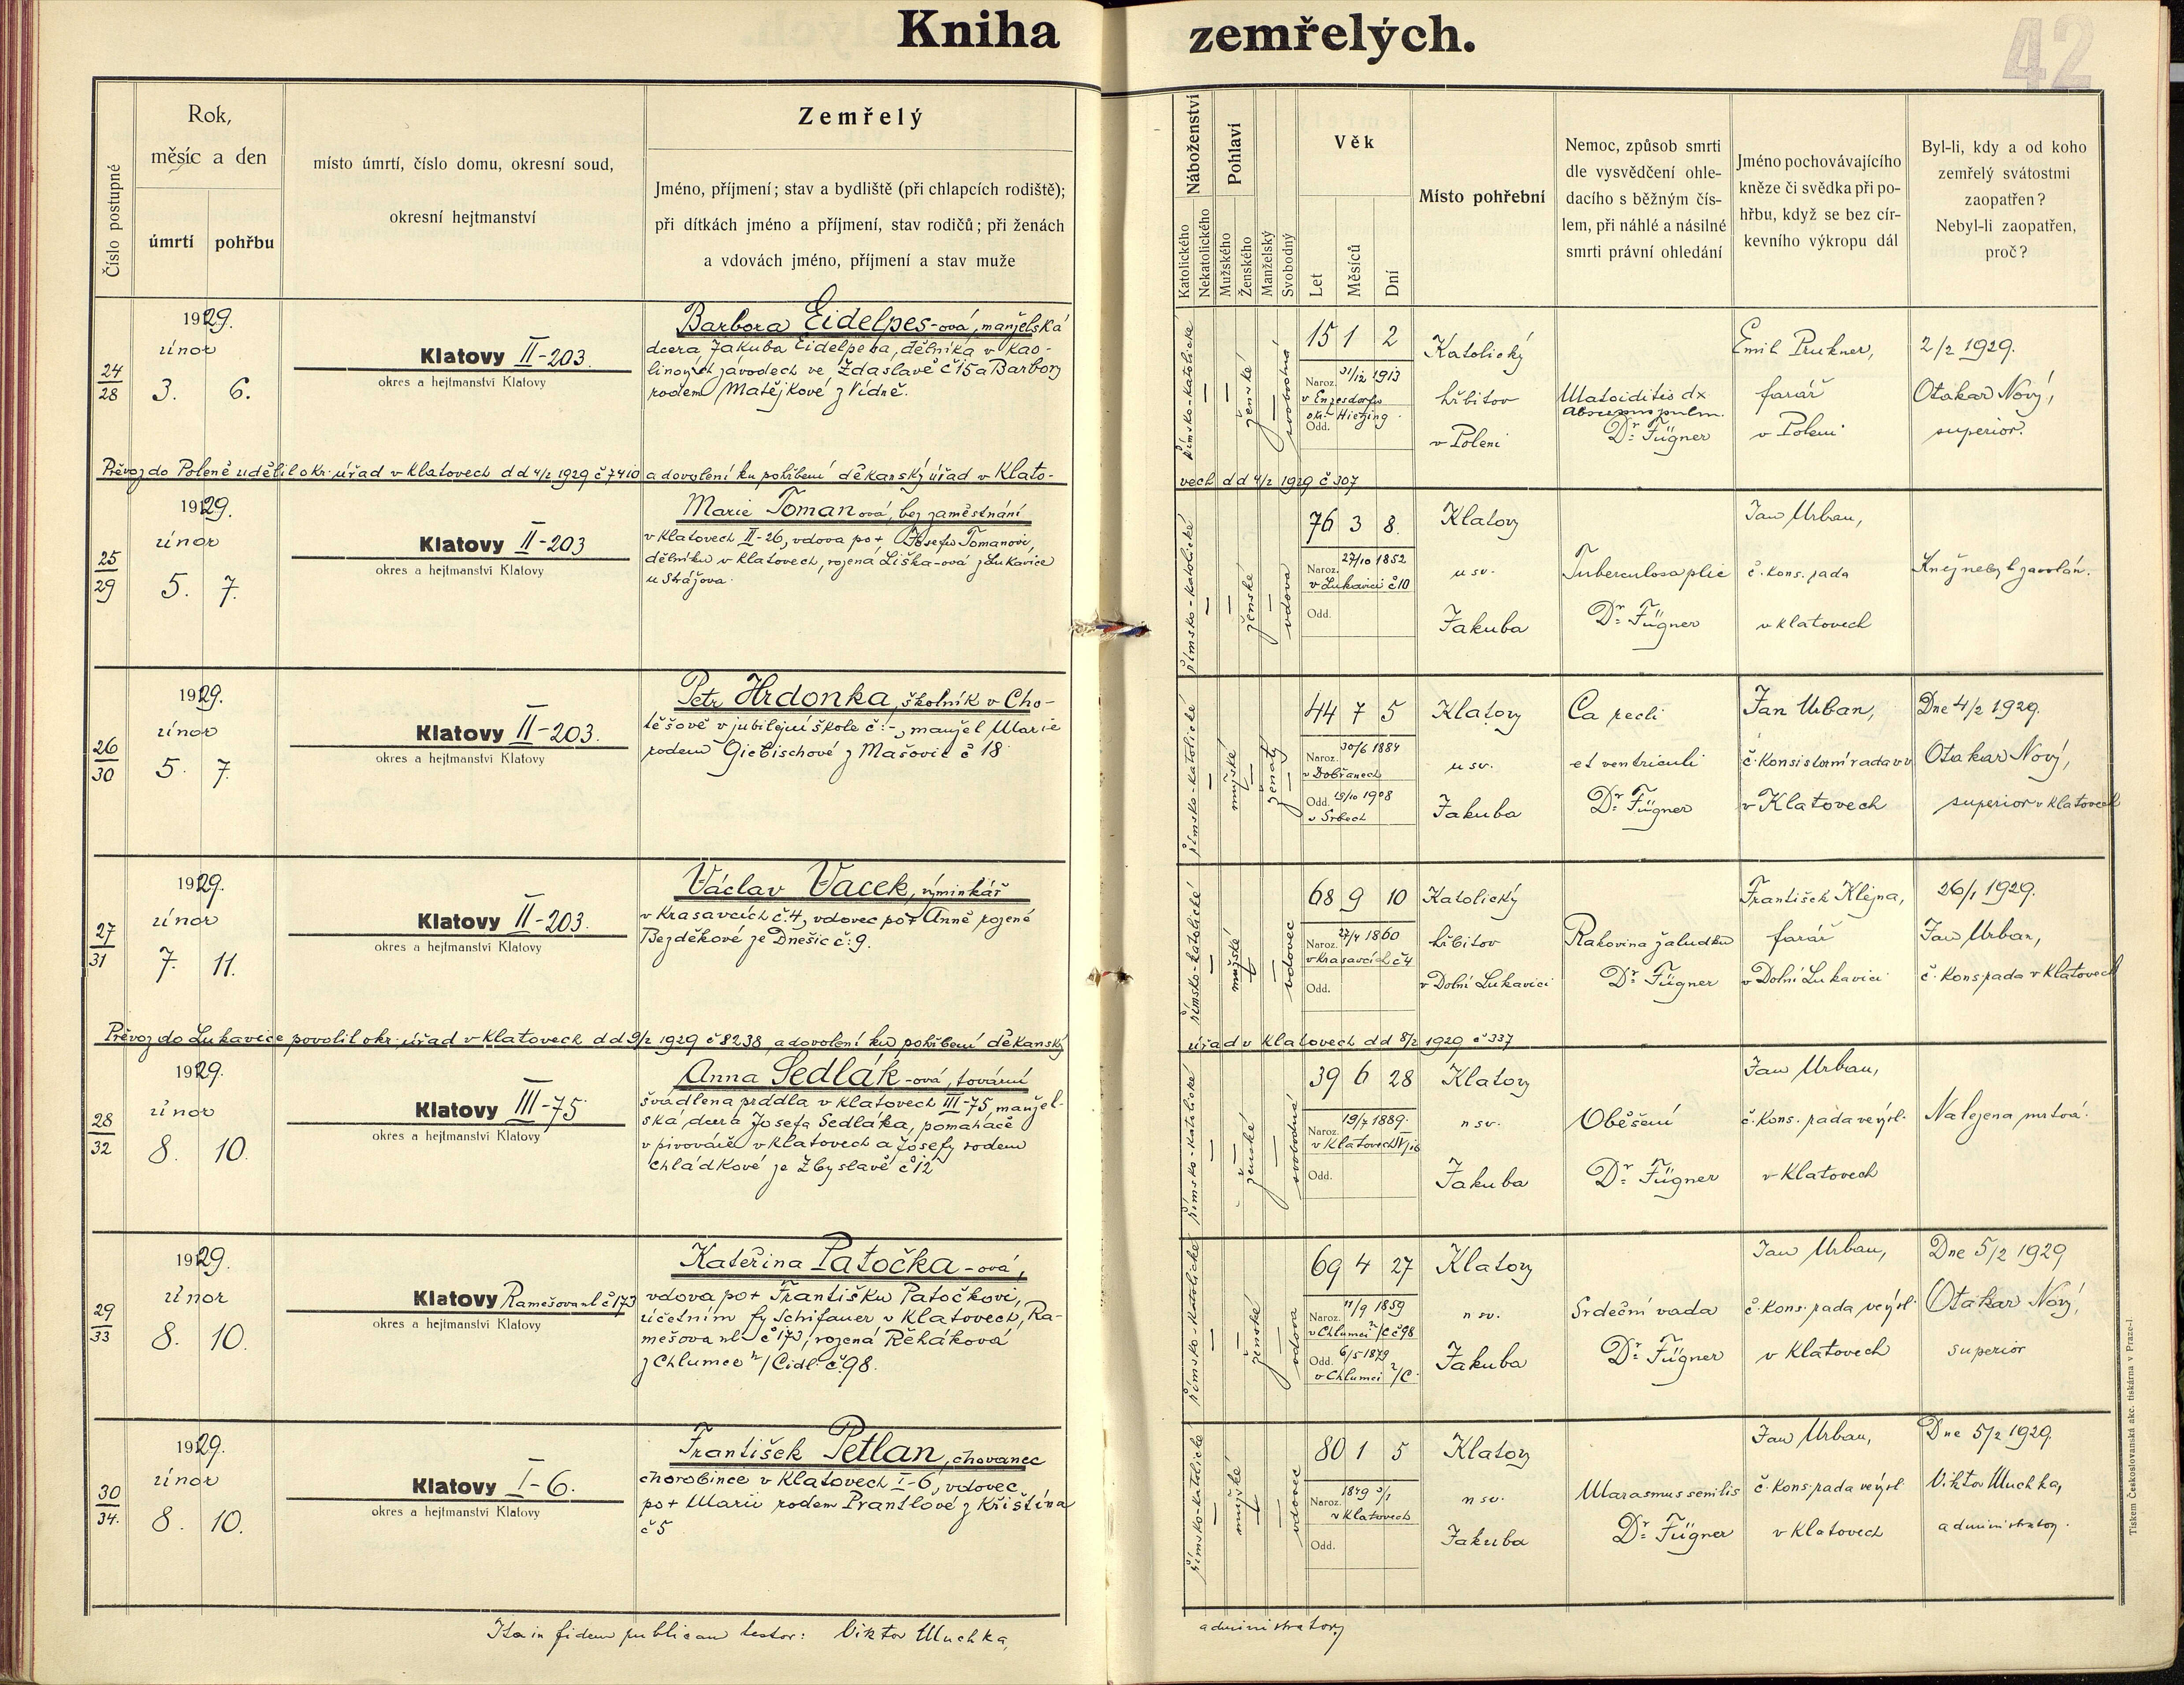 Kniha zemřelých.
42
Číslo postupné
Rok,
měsíc a den
úmrtí
pohřbu
místo úmrtí, číslo domu, okresní soud,
okresní hejtmanství
Zemřelý
Jméno, příjmení; stav a bydliště (při chlapcích rodiště);
při dítkách jméno a příjmení, stav rodičů; při ženách
a vdovách jméno, příjmení a stav muže
Náboženství
Katolického
Nekatolického
Pohlaví
Mužského
Ženského
Manželský
Svobodný
Věk
Let
Měsíců
Dní
Místo pohřební
Nemoc, způsob smrti
dle vysvědčení ohle-
dacího s běžným čís-
lem, při náhlé a násilné
smrti právní ohledání
Jméno pochovávajícího
kněze či svědka při po-
hřbu, když se bez cír-
kevního výkropu dál
Byl-li, kdy a od koho
zemřelý svátostmi
zaopatřen?
Nebyl-li zaopatřen,
proč?
24
28
1929.
únor
3. 6.
Klatovy II-203.
okres a hejtmanství Klatovy
Barbora Eidelpes-ová, manželská
dcera Jakuba Eidelpesa, dělníka v kao-
linových závodech ve Zdaslavě č 15 a Barbory
rodem Matějkové z Vídně.
římsko-katolické
ženské
svobodná
15 1 2
Naroz. 31/12 1913
v Enzesdorfu
okr. Hietzing
Odd.
Katolický
hřbitov
v Poleni
Matoiditis dx
Abscessus pulm.
Dr. Fügner
Emil Prukner,
farář
v Poleni
2/2 1929.
Otakar Nový,
superior.
Převoz do Poleně udělil okr. úřad v Klatovech dd 4/2 1929 č 7410 a dovolení ku pohřbení děkanský úřad v Klato-
vech dd 4/2 1929 č 307
25
29
1929.
únor
5. 7.
Klatovy II-203
okres a hejtmanství Klatovy
Marie Tomanová, bez zaměstnání
v Klatovech II-26, vdova po + Josefu Tomanovi,
dělníku v Klatovech, rozená Liška-ová z Lukavice
u Strážova.
římsko-katolické
ženské
vdova
76 3 8.
Naroz. 27/10 1852
v Lukavici č 10
Odd.
Klatovy
u sv.
Jakuba
Tuberculosa plic
Dr. Fügner
Jan Urban,
č. kons. rada
v Klatovech
Kněz nebyl zavolán.
26
30
1929.
únor
5. 7.
Klatovy II-203.
okres a hejtmanství Klatovy
Petr Hrdonka, školník v Cho-
těšově v jubilejní škole č:-, manžel Marie
rodem Giebischové z Mašovic č 18
římsko-katolické
mužské
ženatý
44 7 5
Naroz. 30/6 1884
v Dobřanech
Odd. 25/10 1908
v Srbech
Klatovy
u sv.
Jakuba
Ca recti
et ventriculi
Dr. Fügner
Jan Urban,
č. konsistorní rada
v Klatovech
Dne 4/2 1929.
Otakar Nový,
superior v Klatovech
27
31
1929.
únor
7. 11.
Klatovy II-203.
okres a hejtmanství Klatovy
Václav Vacek, výminkář
v Krasavcích č. 4, vdovec po + Anně rozené
Bezděkové ze Dnešic č: 9.
římsko-katolické
mužské
vdovec
68 9 10
Naroz. 27/4 1860
v Krasavcích č 4
Odd.
Katolický
hřbitov
v Dolní Lukavici
Rakovina žaludku
Dr. Fügner
František Klejna,
farář
v Dolní Lukavici
26/1 1929.
Jan Urban,
č. kons. rada v Klatovech
Převoz do Lukavice povolil okr. úřad v Klatovech dd 9/2 1929 č 8238, a dovolení ku pohřbení děkanský
úřad v Klatovech dd 8/2 1929 č 337
28
32
1929.
únor
8. 10.
Klatovy III-75
okres a hejtmanství Klatovy
Anna Sedlák-ová, tovární
švadlena prádla v Klatovech III-75, manžel-
ská dcera Josefa Sedláka, pomahače
v pivováře v Klatovech a Josefy rodem
Chládkové ze Zbyslavě č 12
římsko-katolické
ženské
svobodná
39 6 28
Naroz. 19/7 1889.
v Klatovech
Odd.
Klatovy
u sv.
Jakuba
Oběšení
Dr. Fügner
Jan Urban,
č. kons. rada ve výsl.
v Klatovech
Nalezena mrtvá.
29
33
1929.
únor
8. 10.
Klatovy Ramešova ul č 173
okres a hejtmanství Klatovy
Kateřina Patočka-ová,
vdova po + Františku Patočkovi,
účetním fy Schifauer v Klatovech, Ra-
mešova ul. č 173, rozená Řeháková
z Chlumce n/Cidl. č. 98.
římsko-katolické
ženské
vdova
69 4 27
Naroz. 11/9 1859
v Chlumci n/C č 98
Odd. 6/5 1879
v Chlumci n/C.
Klatovy
u sv.
Jakuba
Srdeční vada
Dr. Fügner
Jan Urban,
č. kons. rada ve výsl.
v Klatovech
Dne 5/2 1929
Otakar Nový,
superior
30
34.
1929.
únor
8. 10.
Klatovy I-6.
okres a hejtmanství Klatovy
František Petlan, chovanec
chorobince v Klatovech I-6, vdovec
po + Marii rodem Prantlové z Křištína
č 5
římsko-katolické
mužské
vdovec
80 1 5
Naroz. 1849 3/1
v Klatovech
Odd.
Klatovy
u sv.
Jakuba
Marasmus senilis
Dr. Fügner
Jan Urban,
č. kons. rada ve výsl
v Klatovech
Dne 5/2 1929.
Viktor Muchka,
administrator.
Ita in fidem publicam testor: Viktor Muchka,
administrator
Tiskem Československá akc. tiskárna v Praze-I.